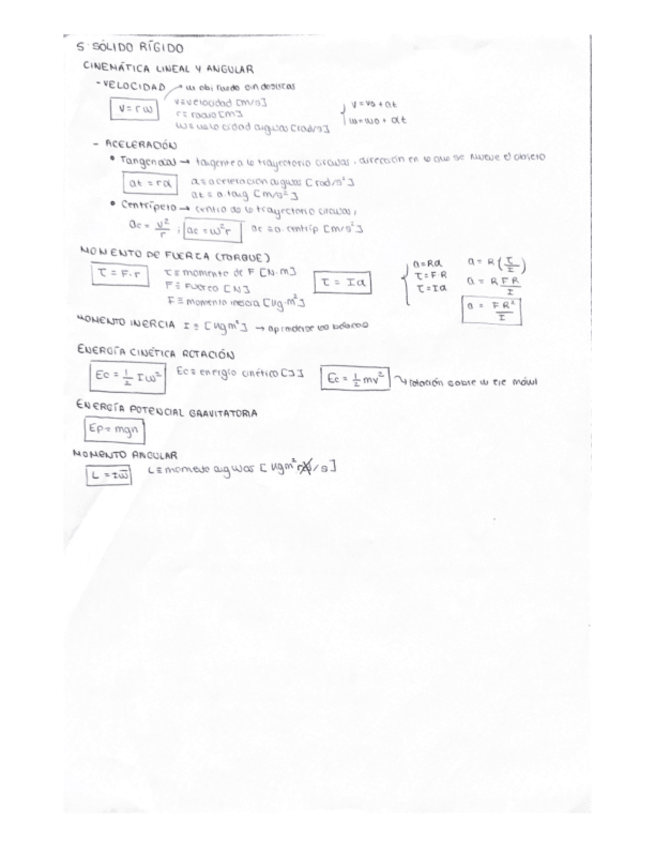 5 SÓLIDO RÍGIDO
CINEMÁTICA LINEAL Y ANGULAR
- VELOCIDAD → un obj rueda sin deslizar
v = rω v ≡ velocidad [m/s] v = v0 + at
r ≡ radio [m] ω = ω0 + αt
ω ≡ velocidad angular [rad/s]
- ACELERACIÓN
• Tangencial → tangente a la trayectoria circular, dirección en la que se mueve el objeto
at = rα α ≡ aceleración angular [rad/s²]
at ≡ a. tang [m/s²]
• Centrípeta → centro de la trayectoria circular,
ac = v²/r ; ac = ω²r ac ≡ a. centríp [m/s²]
MOMENTO DE FUERZA (TORQUE)
τ = F·r τ ≡ momento de F [N·m] τ = Iα a = Rα a = R(τ/I)
F ≡ Fuerza [N] τ = F·R a = R FR/I
F ≡ momento inercia [kg·m²] τ = Iα a = FR²/I
MOMENTO INERCIA I ≡ [kgm²] →
ENERGÍA CINÉTICA ROTACIÓN
Ec = 1/2 Iω² Ec ≡ energía cinética [J] Ec = 1/2 mv² → rotación sobre un eje móvil
ENERGÍA POTENCIAL GRAVITATORIA
Ep = mgh
MOMENTO ANGULAR
L = Iω L ≡ momento angular [kgm² /s]